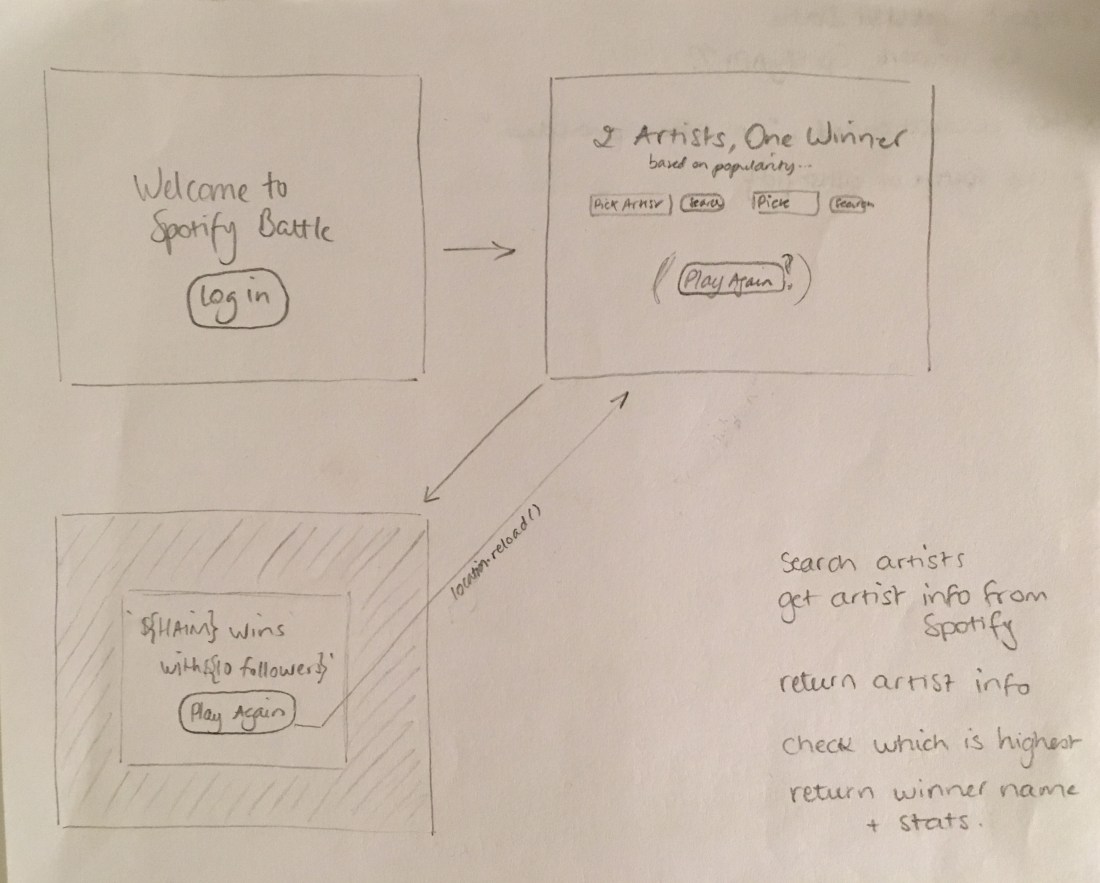 Welcome to
Spotify Battle
Log in
2 Artists, One Winner
based on popularity...
Pick Artist Search Pick Search
(Play Again?)
`${HAIM} wins
with ${10 follower}`
Play Again
location.reload()
Search artists
get artist info from
Spotify
return artist info
check which is highest
return winner name
+ stats.